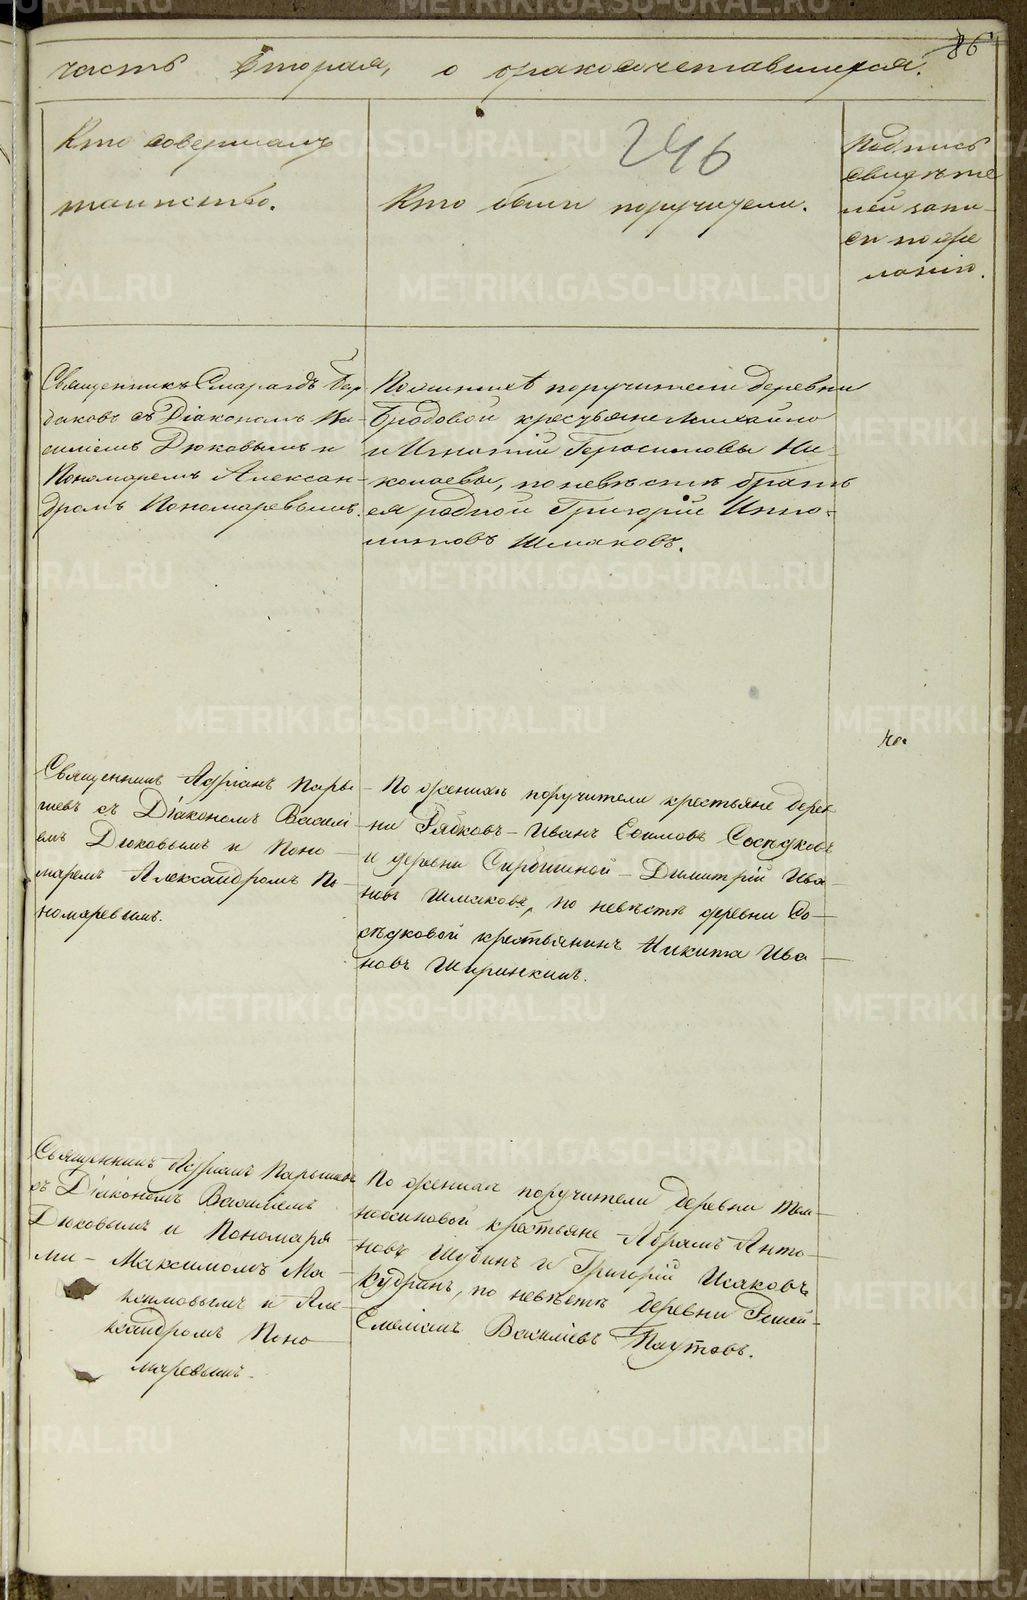 86
часть вторая, о бракосочетавшихся.
246
Кто совершалъ
таинство.
Кто были поручители.
Подпись
свидѣте
лей запи-
си по же
ланію.
Священникъ Смарагдъ Бар
даковъ съ Діакономъ Ва-
силіемъ Дюковымъ и
Пономаремъ Алексан-
дромъ Пономаревымъ.
По женихѣ поручители деревни
Бродовой крестьяне Михайло
и Игнатій Герасимовы Ни-
колаевы, по невѣстѣ братъ
ея родной Григорій Иппо-
литовъ Шмаковъ.
Священникъ Адріанъ Пары-
шевъ съ Діакономъ Василі-
емъ Дюковымъ и Поно-
маремъ Александромъ По-
номаревымъ.
По женихѣ поручители крестьяне дерев-
ни Рябковъ - Иванъ Ефимовъ Сосѣдковъ
и деревни Сарбишной - Димитрій Ива-
новъ Шмаковъ, по невѣстѣ деревни Со-
сѣдковой крестьянинъ Никита Ива-
новъ Ширинкинъ.
Священникъ Адріанъ Парышевъ
съ Діакономъ Василіемъ
Дюковымъ и Пономаря
ми - Максимомъ Ма-
ксимовымъ и Але-
ксандромъ Поно-
маревымъ.
По женихѣ поручители деревни
крестьяне Абрамъ Анто-
новъ Шубинъ и Григорій Исаковъ
Кудринъ, по невѣстѣ деревни
Емельянъ Василіевъ Паутовъ.
METRIKI.GASO-URAL.RU